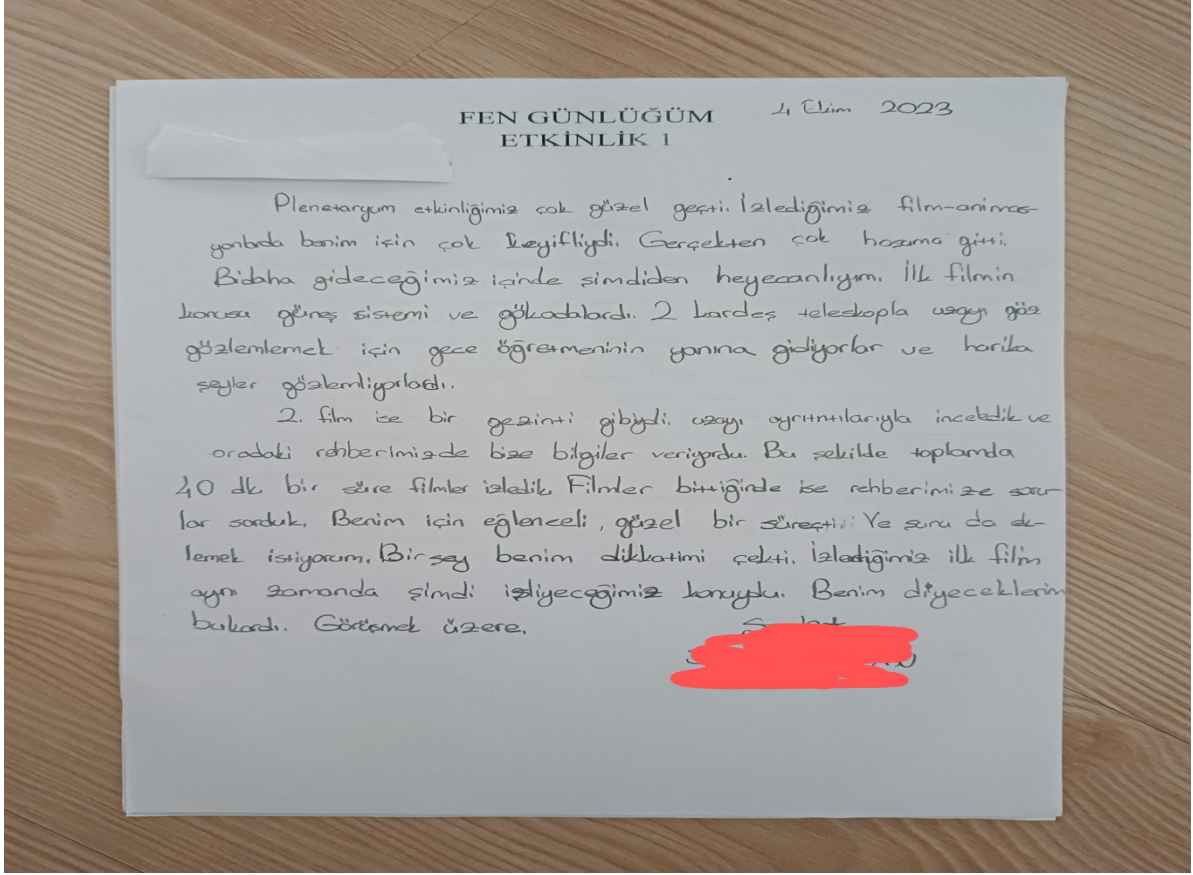 FEN GÜNLÜĞÜM
4 Ekim 2023
ETKİNLİK 1
Plenetaryum etkinliğimiz çok güzel geçti. İzlediğimiz film-animas-
yonlarda benim için çok keyifliydi. Gerçekten çok hoşuma gitti.
Bidaha gideceğimiz içinde şimdiden heyecanlıyım. İlk filmin
konusu güneş sistemi ve gökadalardı. 2 kardeş teleskopla uzayı göz
gözlemlemek için gece öğretmeninin yanına gidiyorlar ve harika
şeyler gözlemliyorlardı.
2. film ise bir gezinti gibiydi. uzayı ayrıntılarıyla inceledik ve
oradaki rehberimizde bize bilgiler veriyordu. Bu şekilde toplamda
40 dk bir süre filmler izledik. Filmler bittiğinde ise rehberimize soru-
lar sorduk. Benim için eğlenceli, güzel bir süreçti. Ve şunu da ek-
lemek istiyorum. Bir şey benim dikkatimi çekti. İzlediğimiz ilk film
aynı zamanda şimdi işliyeceğimiz konuydu. Benim diyeceklerim
bukardı. Görüşmek üzere.